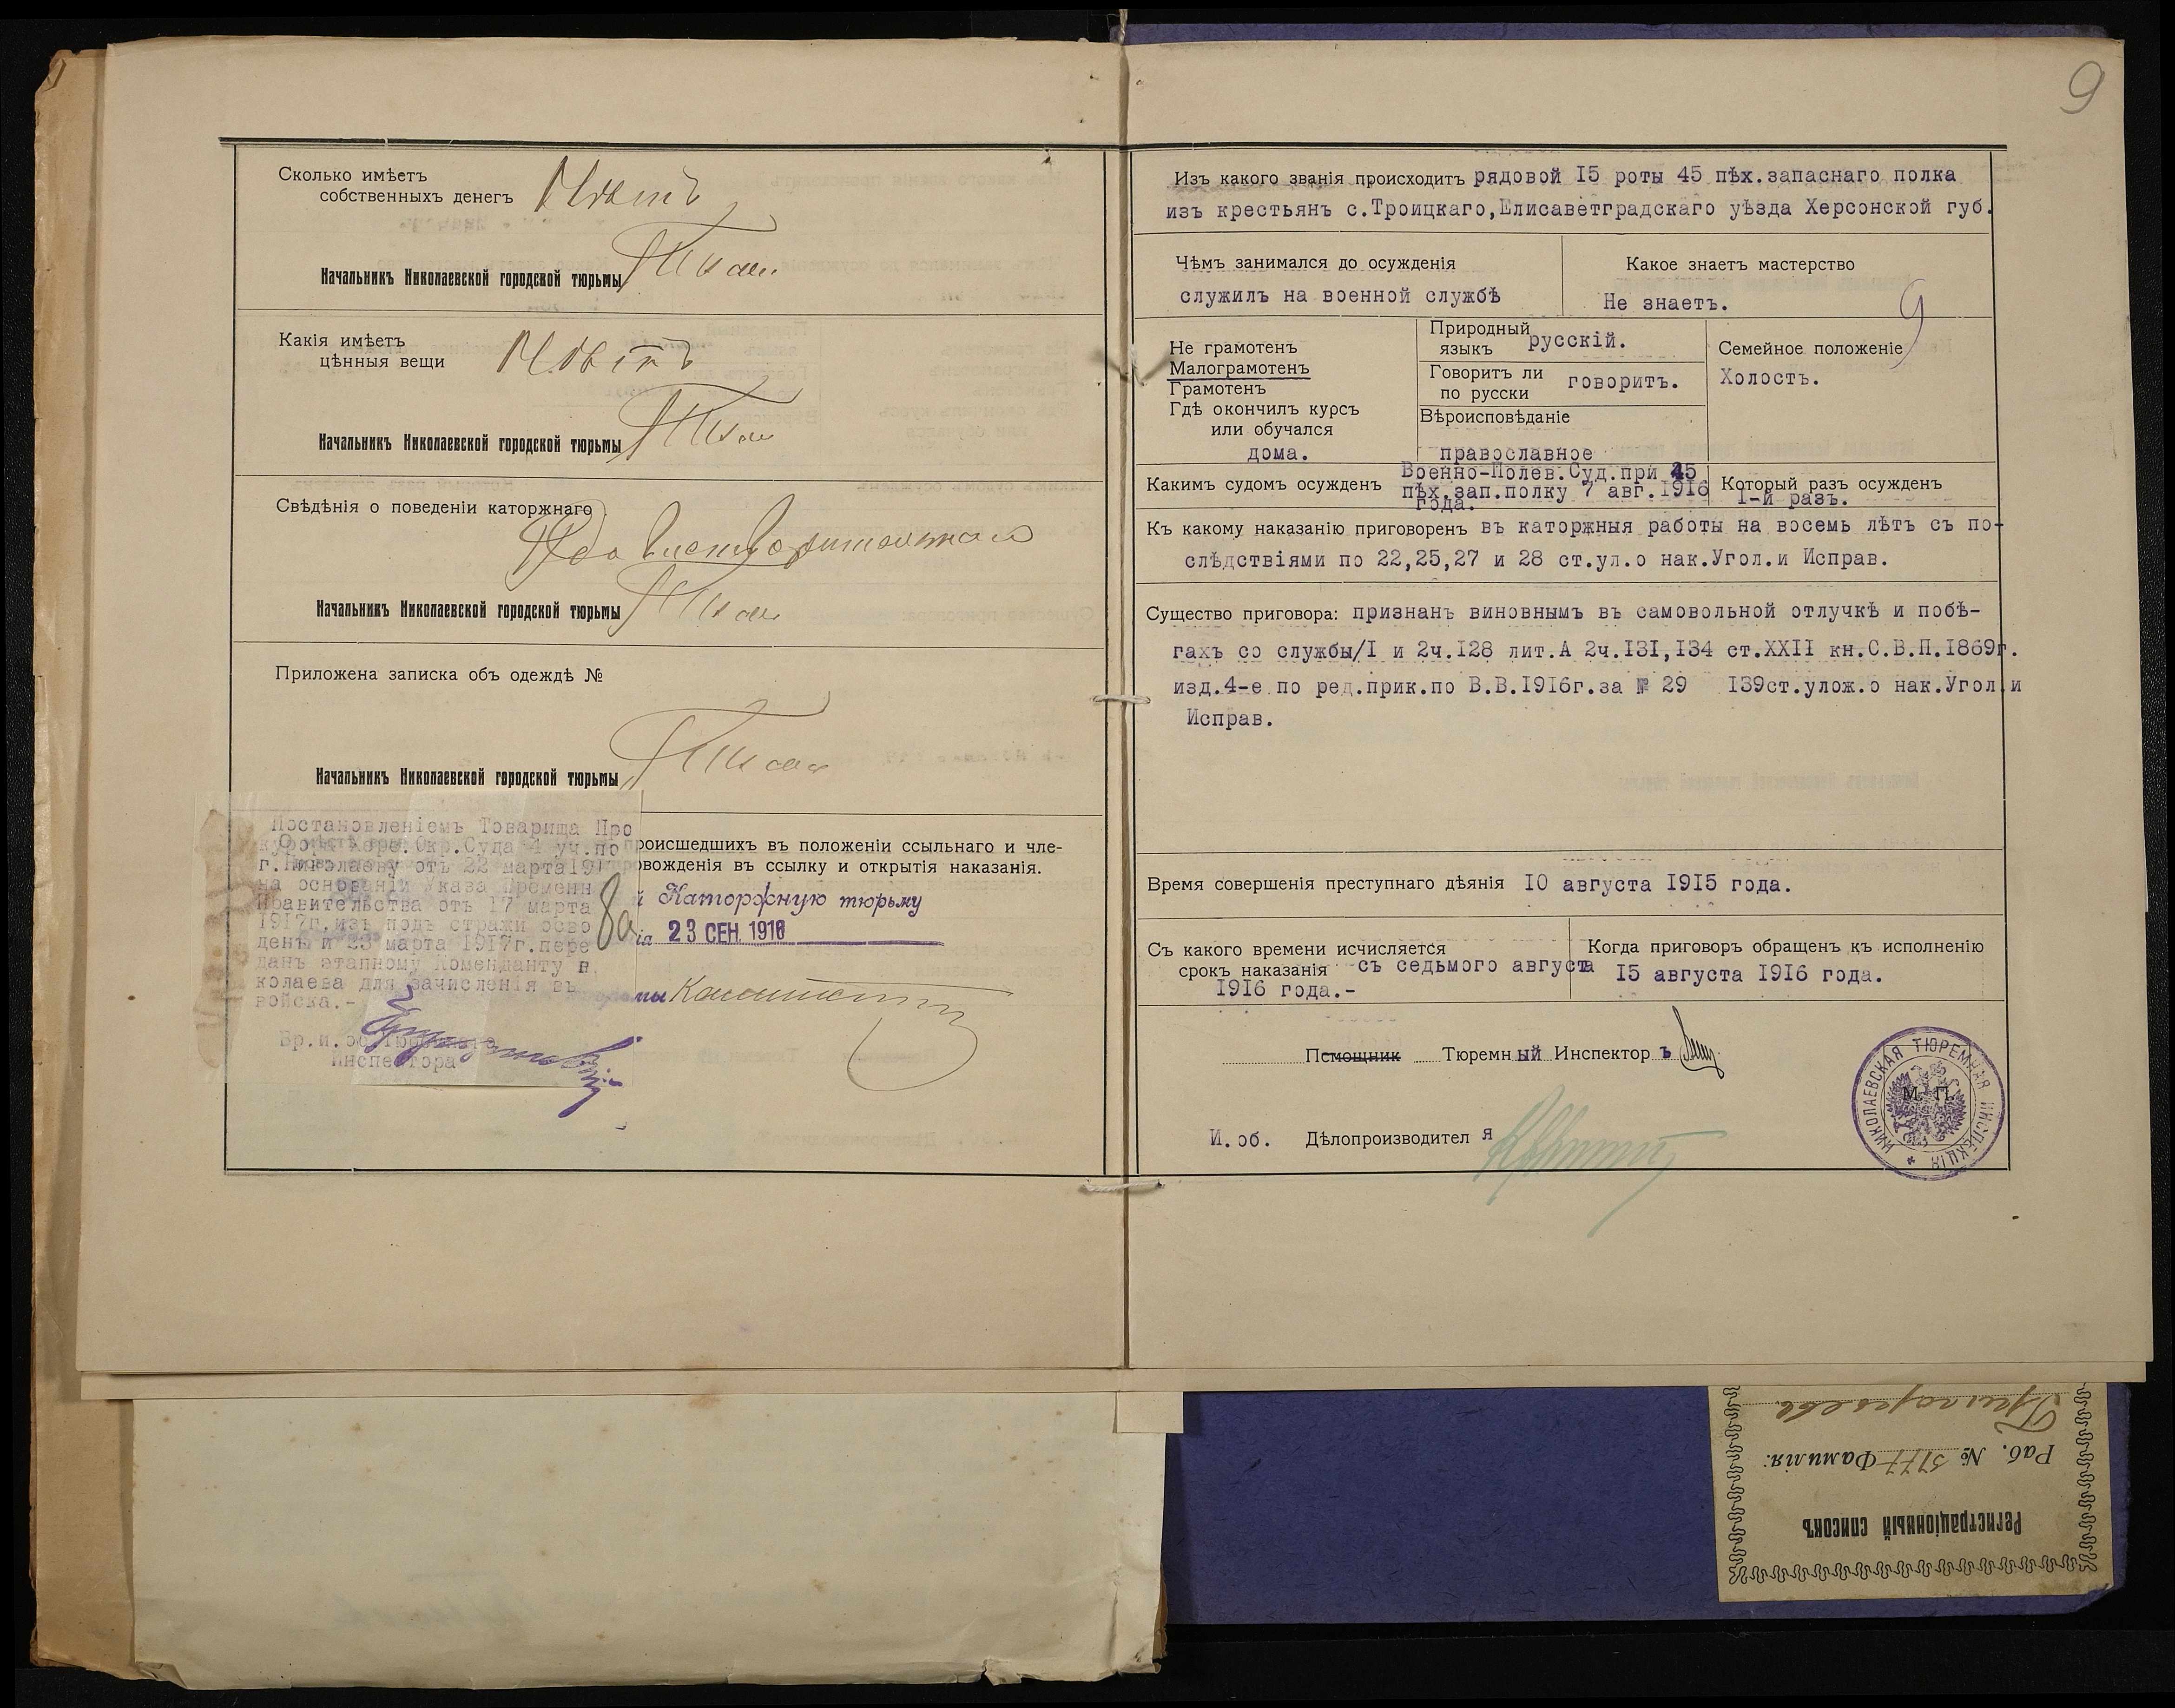 Сколько имѣетъ
собственныхъ денегъ Нѣтъ
Начальникъ Николаевской городской тюрьмы
Какія имѣетъ
цѣнныя вещи Нѣтъ
Начальникъ Николаевской городской тюрьмы
Свѣдѣнія о поведеніи каторжнаго
Удовлетворительнаго
Начальникъ Николаевской городской тюрьмы
Приложена записка объ одеждѣ №
Начальникъ Николаевской городской тюрьмы
Постановленіемъ Товарища Про
курора Херс.Окр.Суда 4 уч.по
г.Николаеву отъ 22 марта191
на основаніи Указа Временн
Правительства отъ 17 марта
1917г.изъ подъ стражи осво
денъ и 23 марта 1917г.пере
данъ этапному Коменданту в.
колаева для зачисленія въ
войска.-
Вр.и.об.Тюремнаго
Инспектора
8а
происшедшихъ въ положеніи ссыльнаго и чле-
овожденія въ ссылку и открытія наказанія.
й Каторжную тюрьму
ія 23 СЕН. 1916
мы
9
Изъ какого званія происходитъ рядовой I5 роты 45 пѣх.запаснаго полка
изъ крестьянъ с.Троицкаго,Елисаветградскаго уѣзда Херсонской губ.
Чѣмъ занимался до осужденія
служилъ на военной службѣ
Какое знаетъ мастерство
Не знаетъ.
9
Не грамотенъ
Малограмотенъ
Грамотенъ
Гдѣ окончилъ курсъ
или обучался
дома.
Природный
языкъ русскій.
Говоритъ ли
по русски говоритъ.
Вѣроисповѣданіе
православное
Семейное положеніе
Холостъ.
Какимъ судомъ осужденъ Военно-Полев.Суд.при 45
пѣх.зап.полку 7 авг.I9I6
года.
Который разъ осужденъ
I-й разъ.
Къ какому наказанію приговоренъ въ каторжныя работы на восемь лѣтъ съ по-
слѣдствіями по 22,25,27 и 28 ст.ул.о нак.Угол.и Исправ.
Существо приговора: признанъ виновнымъ въ самовольной отлучкѣ и побѣ-
гахъ со службы/I и 2ч.I28 лит.А 2ч.I3I,I34 ст.XXII кн.С.В.П.I869г.
изд.4-е по ред.прик.по В.В.I9I6г.за № 29 I39ст.улож.о нак.Угол.и
Исправ.
Время совершенія преступнаго дѣянія IO августа I9I5 года.
Съ какого времени исчисляется
срокъ наказанія съ седьмого августа
I9I6 года.-
Когда приговоръ обращенъ къ исполненію
I5 августа I9I6 года.
Помощник Тюремный Инспекторъ
И.об. Дѣлопроизводителя
М. П.
НИКОЛАЕВСКАЯ ТЮРЕМНАЯ ИНСПЕКЦІЯ
Регистраціонный списокъ
Раб. № 5177 Фамилія:
Григорьевъ